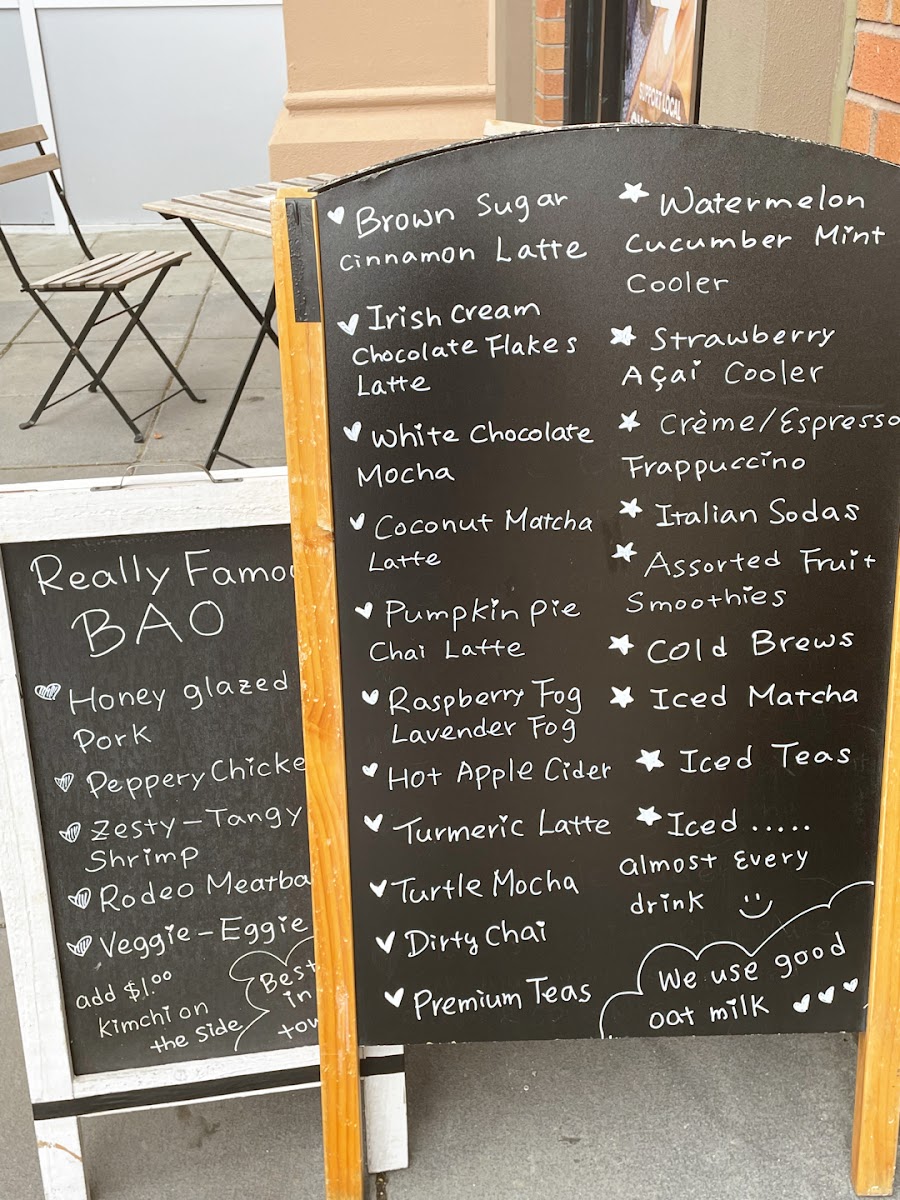 SUPPORT LOCAL
Brown Sugar
cinnamon Latte
Irish cream
Chocolate Flakes
Latte
White Chocolate
Mocha
Coconut Matcha
Latte
Pumpkin pie
Chai Latte
Raspberry Fog
Lavender Fog
Hot Apple Cider
Turmeric Latte
Turtle Mocha
Dirty Chai
Premium Teas
Watermelon
Cucumber Mint
Cooler
Strawberry
Açai Cooler
Crème/Espresso
Frappuccino
Italian Sodas
Assorted Fruit
Smoothies
Cold Brews
Iced Matcha
Iced Teas
Iced .....
almost every
drink
We use good
oat milk
Really Famou
BAO
Honey glazed
Pork
Peppery Chicke
Zesty-Tangy
Shrimp
Rodeo Meatba
Veggie-Eggie
add $1.00
kimchi on
the side
Best
in
tow